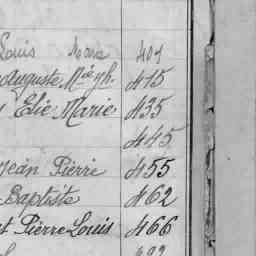 Louis Marc 401
Auguste Mie Jh. 415
Elie Marie 435
445
Jean Pierre 455
Baptiste 462
et Pierre Louis 466